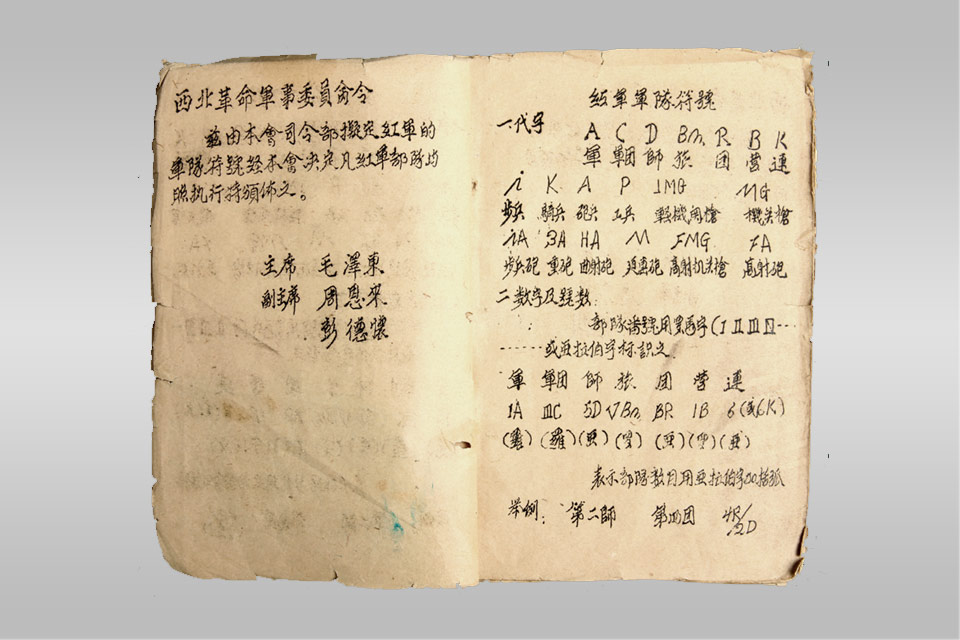 西北革命軍事委員會令
茲由本會司令部擬定紅軍的
軍隊符號経本會决定凡紅軍部隊均
照执行特頒佈之。
主席 毛澤東
副主席 周恩來
彭德懷
紅軍軍隊符號
一.代字 A C D Bm. R B K
軍 軍団 師 旅 団 營 連
i K A P lMG MG
步兵 騎兵 砲兵 工兵 輕機関槍 機关槍
iA BA HA M FMG FA
步兵砲 重砲 曲射砲 迫擊砲 高射机关槍 高射砲
二 数字及號数:
部隊諸號用羅馬字(I II III IV----
------或亞拉伯字标識之
軍 軍団 師 旅 団 營 連
IA IIIC 5D V Bm 8R IB 6(或6K)
(羅) (羅) (亞) (罗) (亞) (罗) (亞)
表示部隊数目用亞拉伯字加括弧
举例: 第二師 第四団 4R/2D